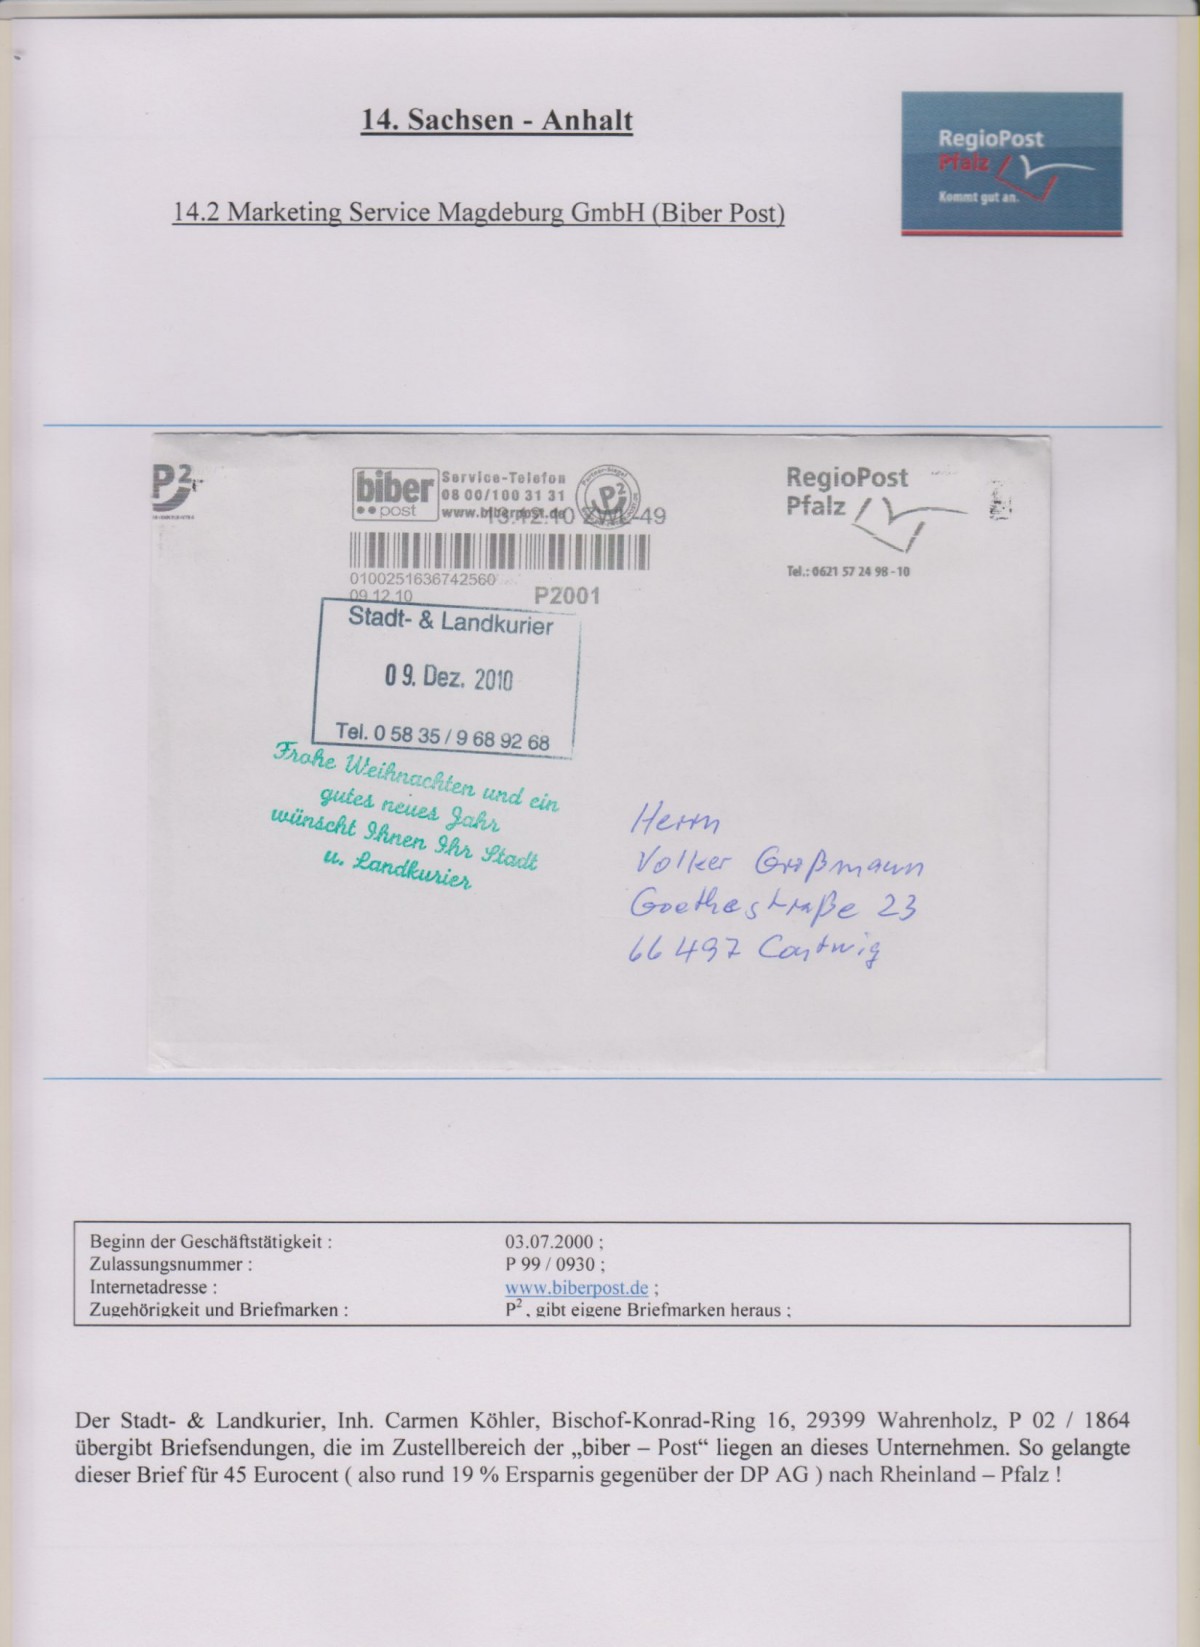 14. Sachsen - Anhalt
RegioPost
Pfalz
Kommt gut an.
14.2 Marketing Service Magdeburg GmbH (Biber Post)
P²
biber
post
Service-Telefon
08 00/100 31 31
www.biberpost.de
13.12.10 ZWL-49
P²
RegioPost
Pfalz
Tel.: 0621 57 24 98 - 10
0100251636742560
09.12.10
P2001
Stadt- & Landkurier
09. Dez. 2010
Tel. 0 58 35 / 9 68 92 68
Frohe Weihnachten und ein
gutes neues Jahr
wünscht Ihnen Ihr Stadt
u. Landkurier
Herrn
Volker Großmann
Goethestraße 23
66497 Contwig
Beginn der Geschäftstätigkeit : 03.07.2000 ;
Zulassungsnummer : P 99 / 0930 ;
Internetadresse : www.biberpost.de ;
Zugehörigkeit und Briefmarken : P², gibt eigene Briefmarken heraus ;
Der Stadt- & Landkurier, Inh. Carmen Köhler, Bischof-Konrad-Ring 16, 29399 Wahrenholz, P 02 / 1864
übergibt Briefsendungen, die im Zustellbereich der „biber – Post“ liegen an dieses Unternehmen. So gelangte
dieser Brief für 45 Eurocent ( also rund 19 % Ersparnis gegenüber der DP AG ) nach Rheinland – Pfalz !